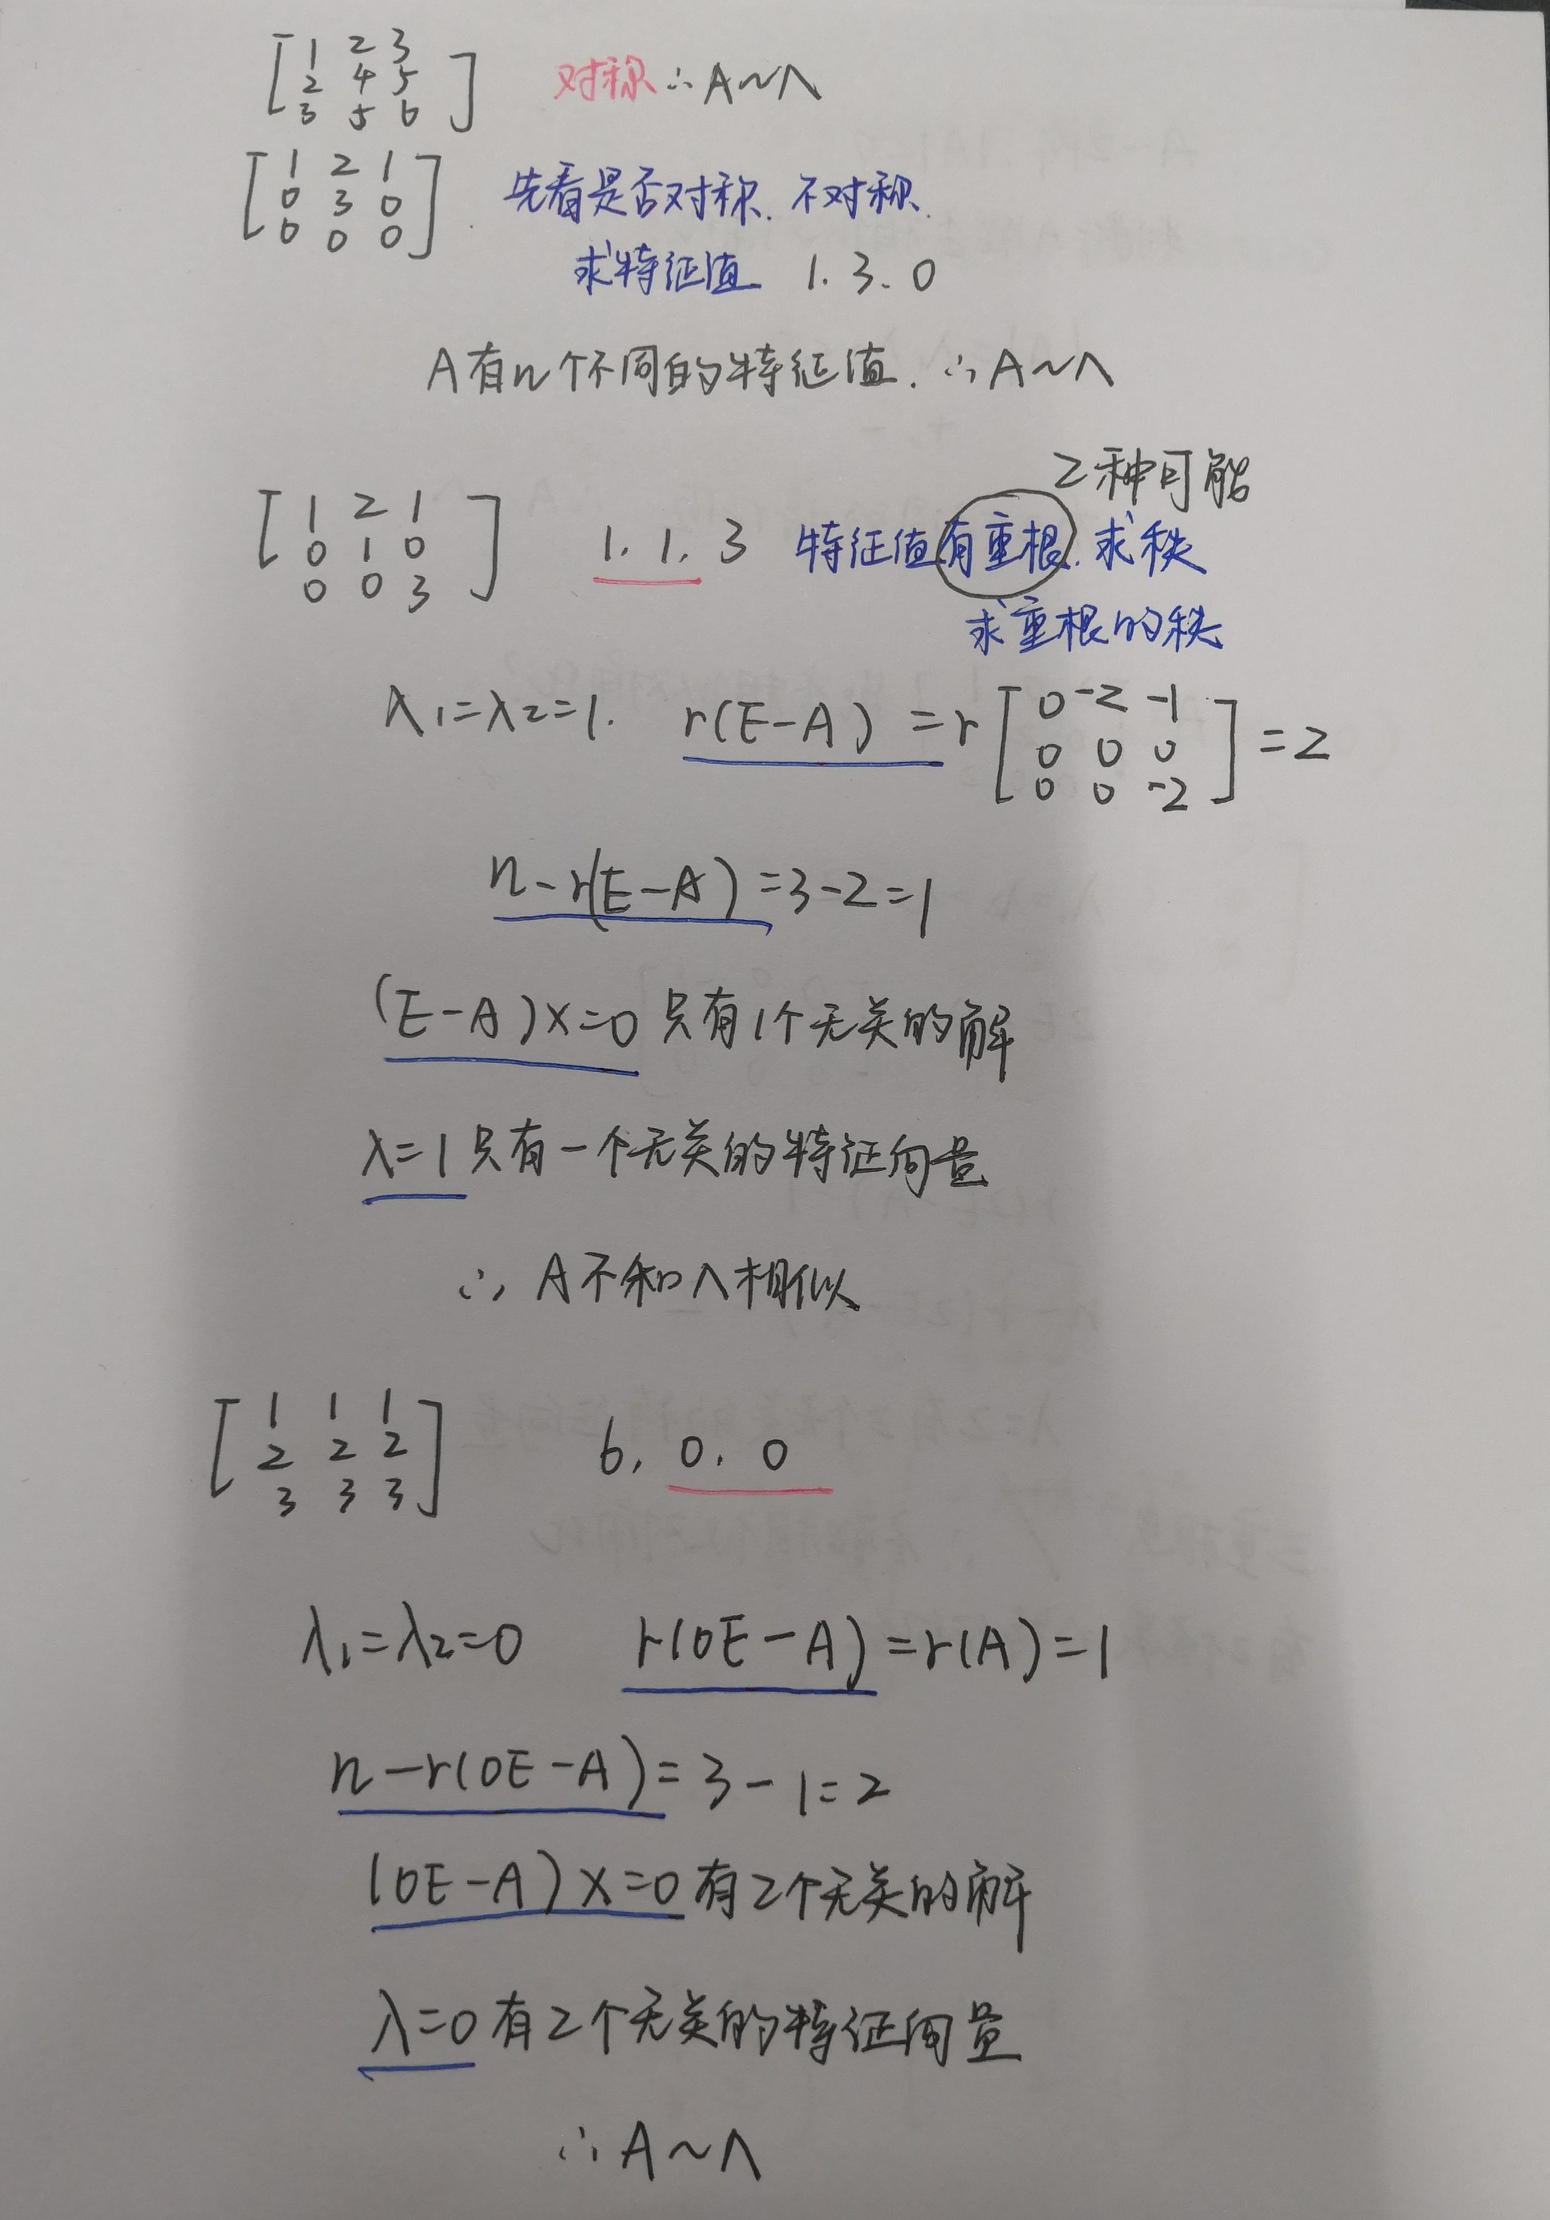 [1 2 3
2 4 5
3 5 6] 对称 ∴ A~Λ
[1 2 1
0 3 0
0 0 0] 先看是否对称. 不对称.
求特征值 1. 3. 0
A有n个不同的特征值. ∴ A~Λ
2种可能
[1 2 1
0 1 0
0 0 3] 1. 1. 3 特征值有重根. 求秩
求重根的秩
λ1=λ2=1. r(E-A) = r[0 -2 -1
0 0 0
0 0 -2] = 2
n-r(E-A) = 3-2=1
(E-A)x=0 只有1个无关的解
λ=1 只有一个无关的特征向量
∴ A不和Λ相似
[1 1 1
2 2 2
3 3 3] 6. 0. 0
λ1=λ2=0 r(0E-A) = r(A) = 1
n-r(0E-A) = 3-1=2
(0E-A)x=0 有2个无关的解
λ=0 有2个无关的特征向量
∴ A~Λ